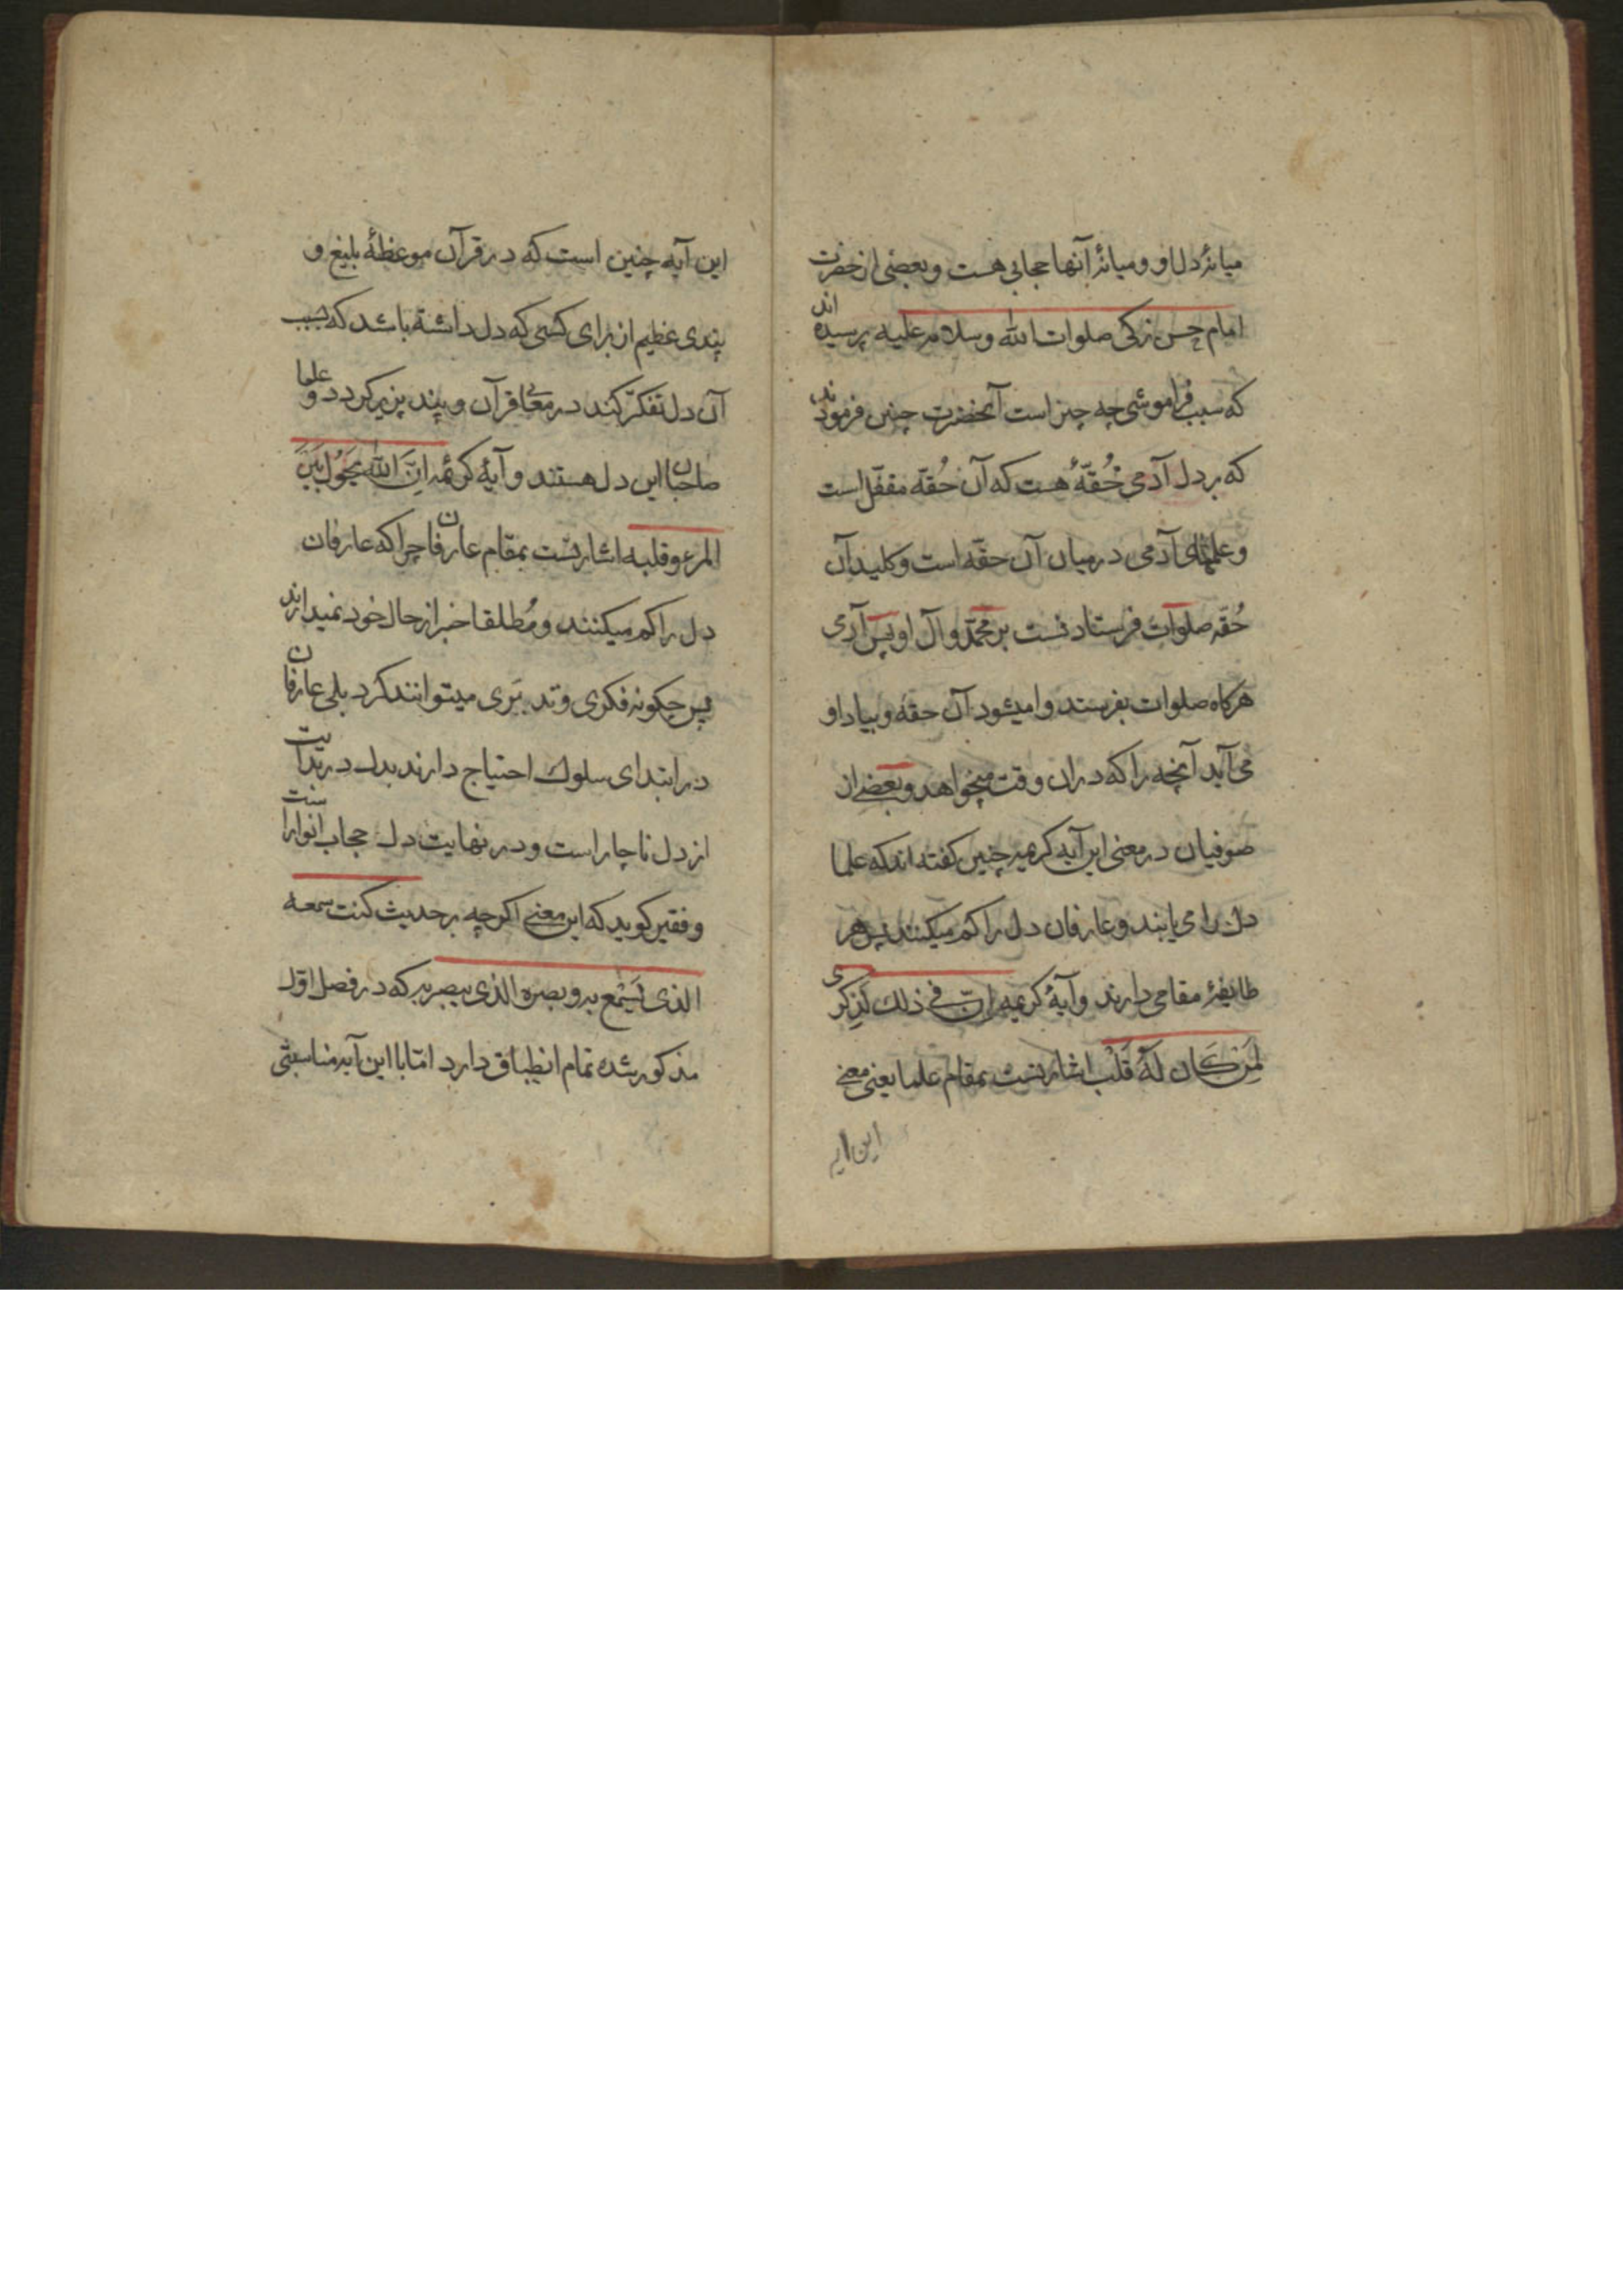 میانۀ دل او و میانۀ آنها حجابی هست و بعضی از حضرت
امام حسن زکی صلوات الله و سلامه علیه پرسیده اند
که سبب فراموشی چه چیز است آنحضرت چنین فرمودند
که بر دل آدمی حُقّهٔ هست که آن حُقّه مقفّل است
و علمهای آدمی در میان آن حقّه است و کلید آن
حُقّه صلوات فرستادنست بر محمّد و آل او پس آدمی
هرکاه صلوات بفرستد وا میشود آن حقّه و بیاد او
می آید آنچه را که در ان وقت میخواهد و بعضے از
صوفیان در معنی این آیه کریمه چنین کفته اند که علما
دل را می یابند و عارفان دل را کم میکنند پس هر
طایفۀ مقامی دارند و آیۀ کریمه اِنّ فی ذلک لَذِکری
لِمَن کَان لَهُ قَلْب اشارتست بمقام علما یعنی معنی
این ایه
این آیه چنین است که در قرآن موعظۀ بلیغ و
پندی عظیم از برای کسی که دل داشته باشد که بسبب
آن دل تفکّر کند در معانی قرآن و پند پزیر کردد و علما
صاحبان این دل هستند و آیۀ کریمه اِنَّ اللّهَ یَحُولُ بَیْنَ
المرء و قلبه اشارتست بمقام عارفان چرا که عارفان
دل را کم میکنند و مُطلقا خبر از حال خود نمیدارند
پس چکونه فکری و تدبیری میتوانند کرد بلی عارفان
در ابتدای سلوک احتیاج دارند بدل در بدایت
از دل ناچار است و در نهایت دل حجاب انوار است
و فقیر کوید که این معنی اکرچه بر حدیث کنت سمعه
الذی یَسْمَع به و بصره الذی یبصر به که در فصل اوّل
مذکور شده تمام انطباق دارد امّا با این آیه مناسبتی